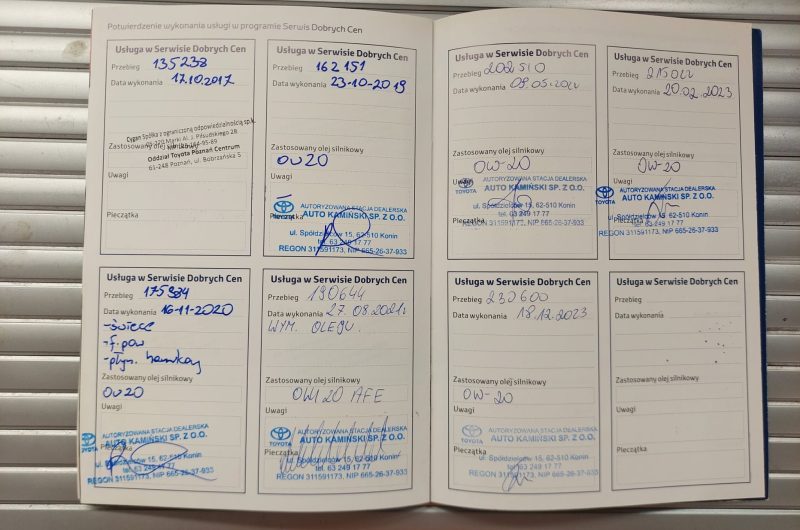 Potwierdzenie wykonania usługi w programie Serwis Dobrych Cen
Usługa w Serwisie Dobrych Cen
Przebieg 135238
Data wykonania 17.10.2017
Cygan Spółka z ograniczoną odpowiedzialnością sp.k.
Zastosowany olej silnikowy
Oddział Toyota Poznań Centrum
61-248 Poznań, ul. Bobrzańska 5
Uwagi
Pieczątka
Usługa w Serwisie Dobrych Cen
Przebieg 162 151
Data wykonania 23-10-2019
Zastosowany olej silnikowy
0W20
Uwagi
TOYOTA
AUTORYZOWANA STACJA DEALERSKA
AUTO KAMIŃSKI SP. Z O.O.
Pieczątka
ul. Spółdzielców 15, 62-510 Konin
tel. 63 249 17 77
REGON 311591173, NIP 665-26-37-933
Usługa w Serwisie Dobrych Cen
Przebieg 202510
Data wykonania
Zastosowany olej silnikowy
0W-20
Uwagi
TOYOTA
AUTORYZOWANA STACJA DEALERSKA
AUTO KAMIŃSKI SP. Z O.O.
Pieczątka
ul. Spółdzielców 15, 62-510 Konin
tel. 63 249 17 77
REGON 311591173, NIP 665-26-37-933
Usługa w Serwisie Dobrych Cen
Przebieg
Data wykonania 20.02.2023
Zastosowany olej silnikowy
0W-20
Uwagi
TOYOTA
AUTORYZOWANA STACJA DEALERSKA
AUTO KAMIŃSKI SP. Z O.O.
Pieczątka
ul. Spółdzielców 15, 62-510 Konin
tel. 63 249 17 77
REGON 311591173, NIP 665-26-37-933
Usługa w Serwisie Dobrych Cen
Przebieg 175984
Data wykonania 16-11-2020
-świece
-f. pow
-płyn. hamulcowy
Zastosowany olej silnikowy
0W20
Uwagi
TOYOTA
AUTORYZOWANA STACJA DEALERSKA
AUTO KAMIŃSKI SP. Z O.O.
Pieczątka
ul. Spółdzielców 15, 62-510 Konin
tel. 63 249 17 77
REGON 311591173, NIP 665-26-37-933
Usługa w Serwisie Dobrych Cen
Przebieg 190644
Data wykonania 27.08.2021r
WYM. OLEJU.
Zastosowany olej silnikowy
0W20 AFE
Uwagi
TOYOTA
AUTORYZOWANA STACJA DEALERSKA
AUTO KAMIŃSKI SP. Z O.O.
Pieczątka
ul. Spółdzielców 15, 62-510 Konin
tel. 63 249 17 77
REGON 311591173, NIP 665-26-37-933
Usługa w Serwisie Dobrych Cen
Przebieg 230600
Data wykonania 18.12.2023
Zastosowany olej silnikowy
0W-20
Uwagi
TOYOTA
AUTORYZOWANA STACJA DEALERSKA
AUTO KAMIŃSKI SP. Z O.O.
Pieczątka
ul. Spółdzielców 15, 62-510 Konin
tel. 63 249 17 77
REGON 311591173, NIP 665-26-37-933
Usługa w Serwisie Dobrych Cen
Przebieg
Data wykonania
Zastosowany olej silnikowy
Uwagi
Pieczątka